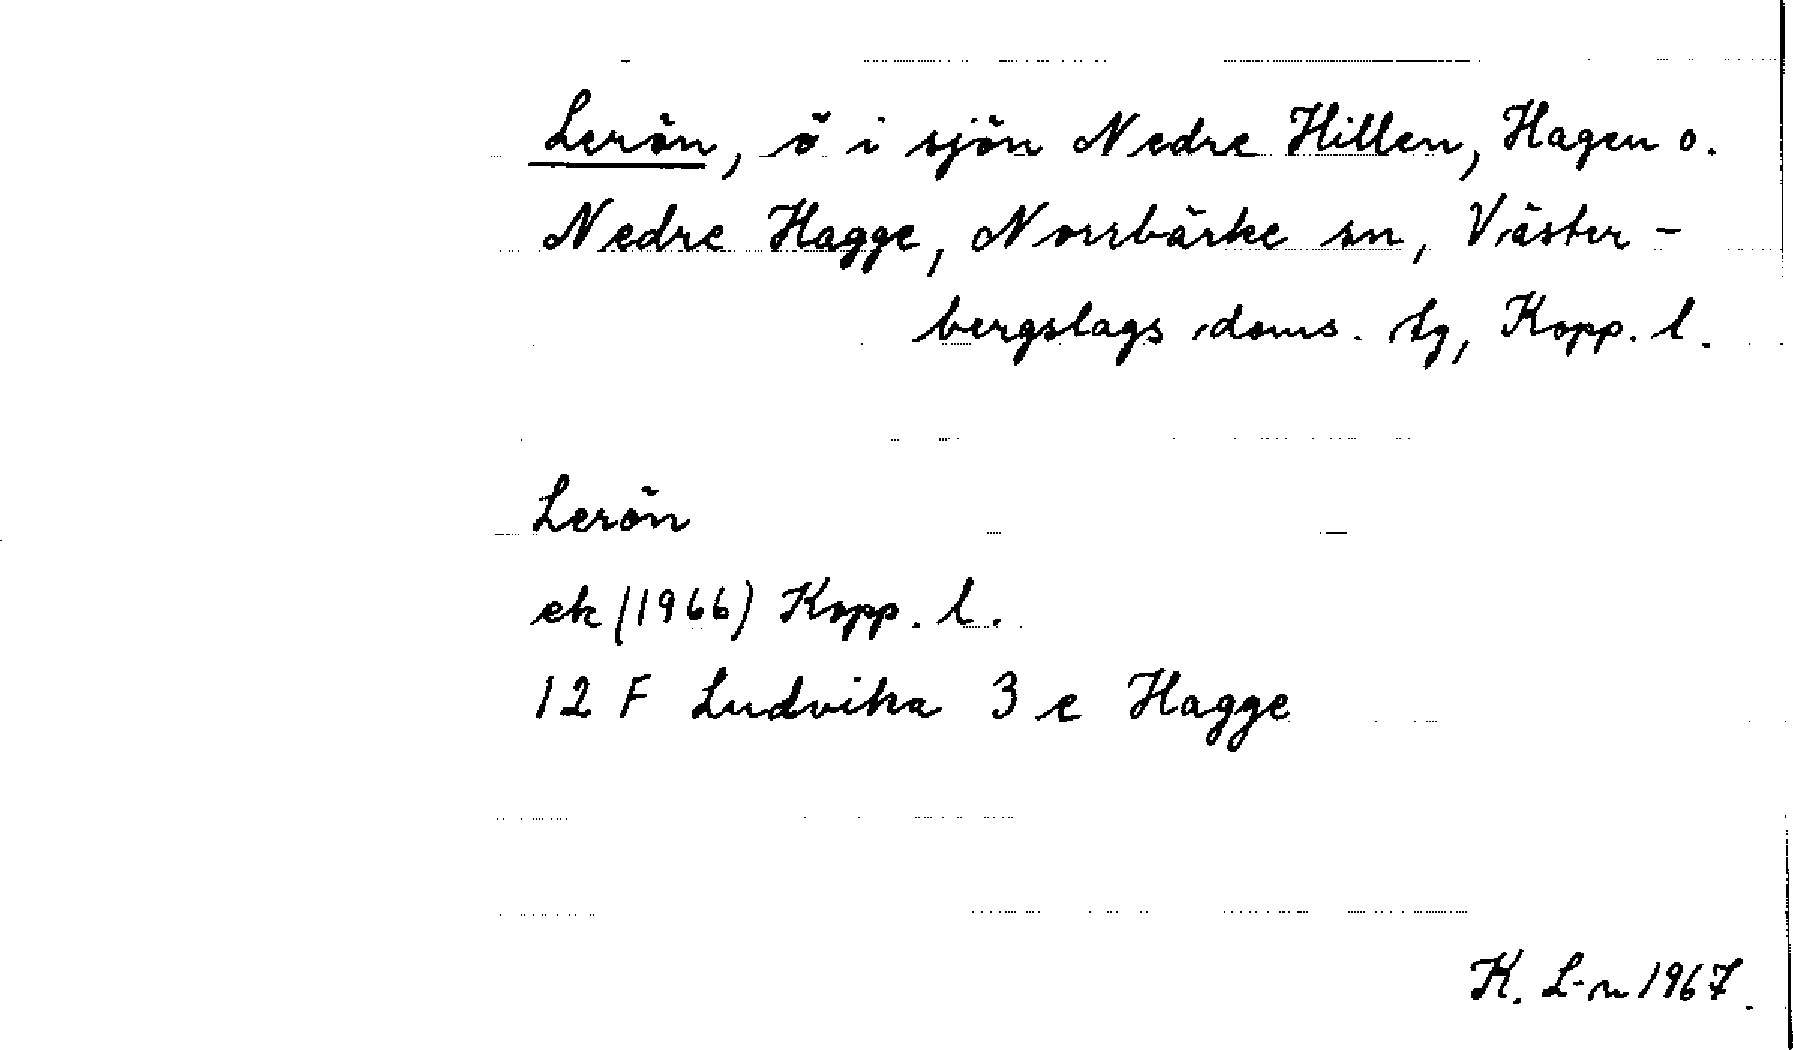 Lerön, ö i sjön Nedre Hillen, Hagen o.
Nedre Hagge, Norrbärke sn, Väster-
bergslags doms. tg, Kopp. l.
Lerön
ek (1966) Kopp. l.
12 F Ludvika 3 e Hagge
K. L-n 1967.